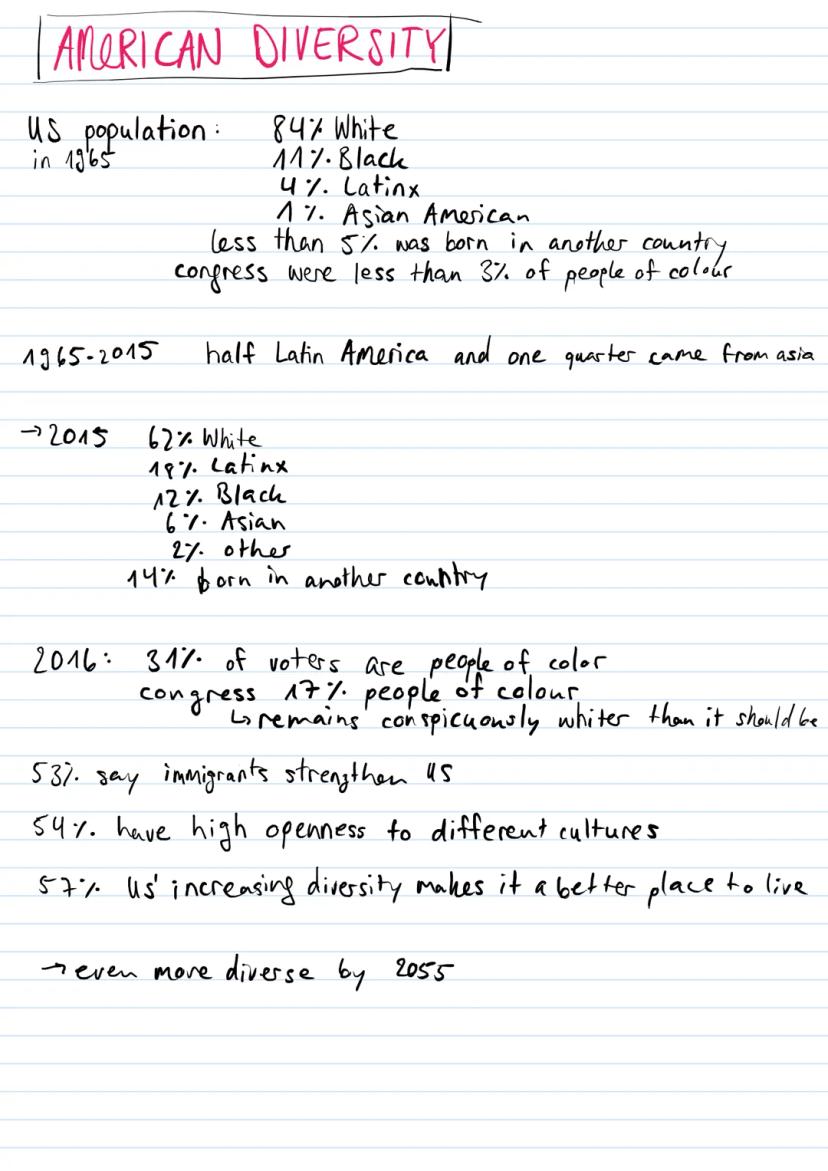 AMERICAN DIVERSITY
US population: 84% White
in 1965
11% Black
4% Latinx
1% Asian American
less than 5% was born in another country
congress were less than 3% of people of colour
1965-2015 half Latin America and one quarter came from asia
→2015 62% White
18% Latinx
12% Black
6% Asian
2% other
14% born in another country
2016: 31% of voters are people of color
congress 17% people of colour
↳remains conspicuously whiter than it should be
53% say immigrants strengthen US
54% have high openness to different cultures
57% US' increasing diversity makes it a better place to live
→even more diverse by 2055